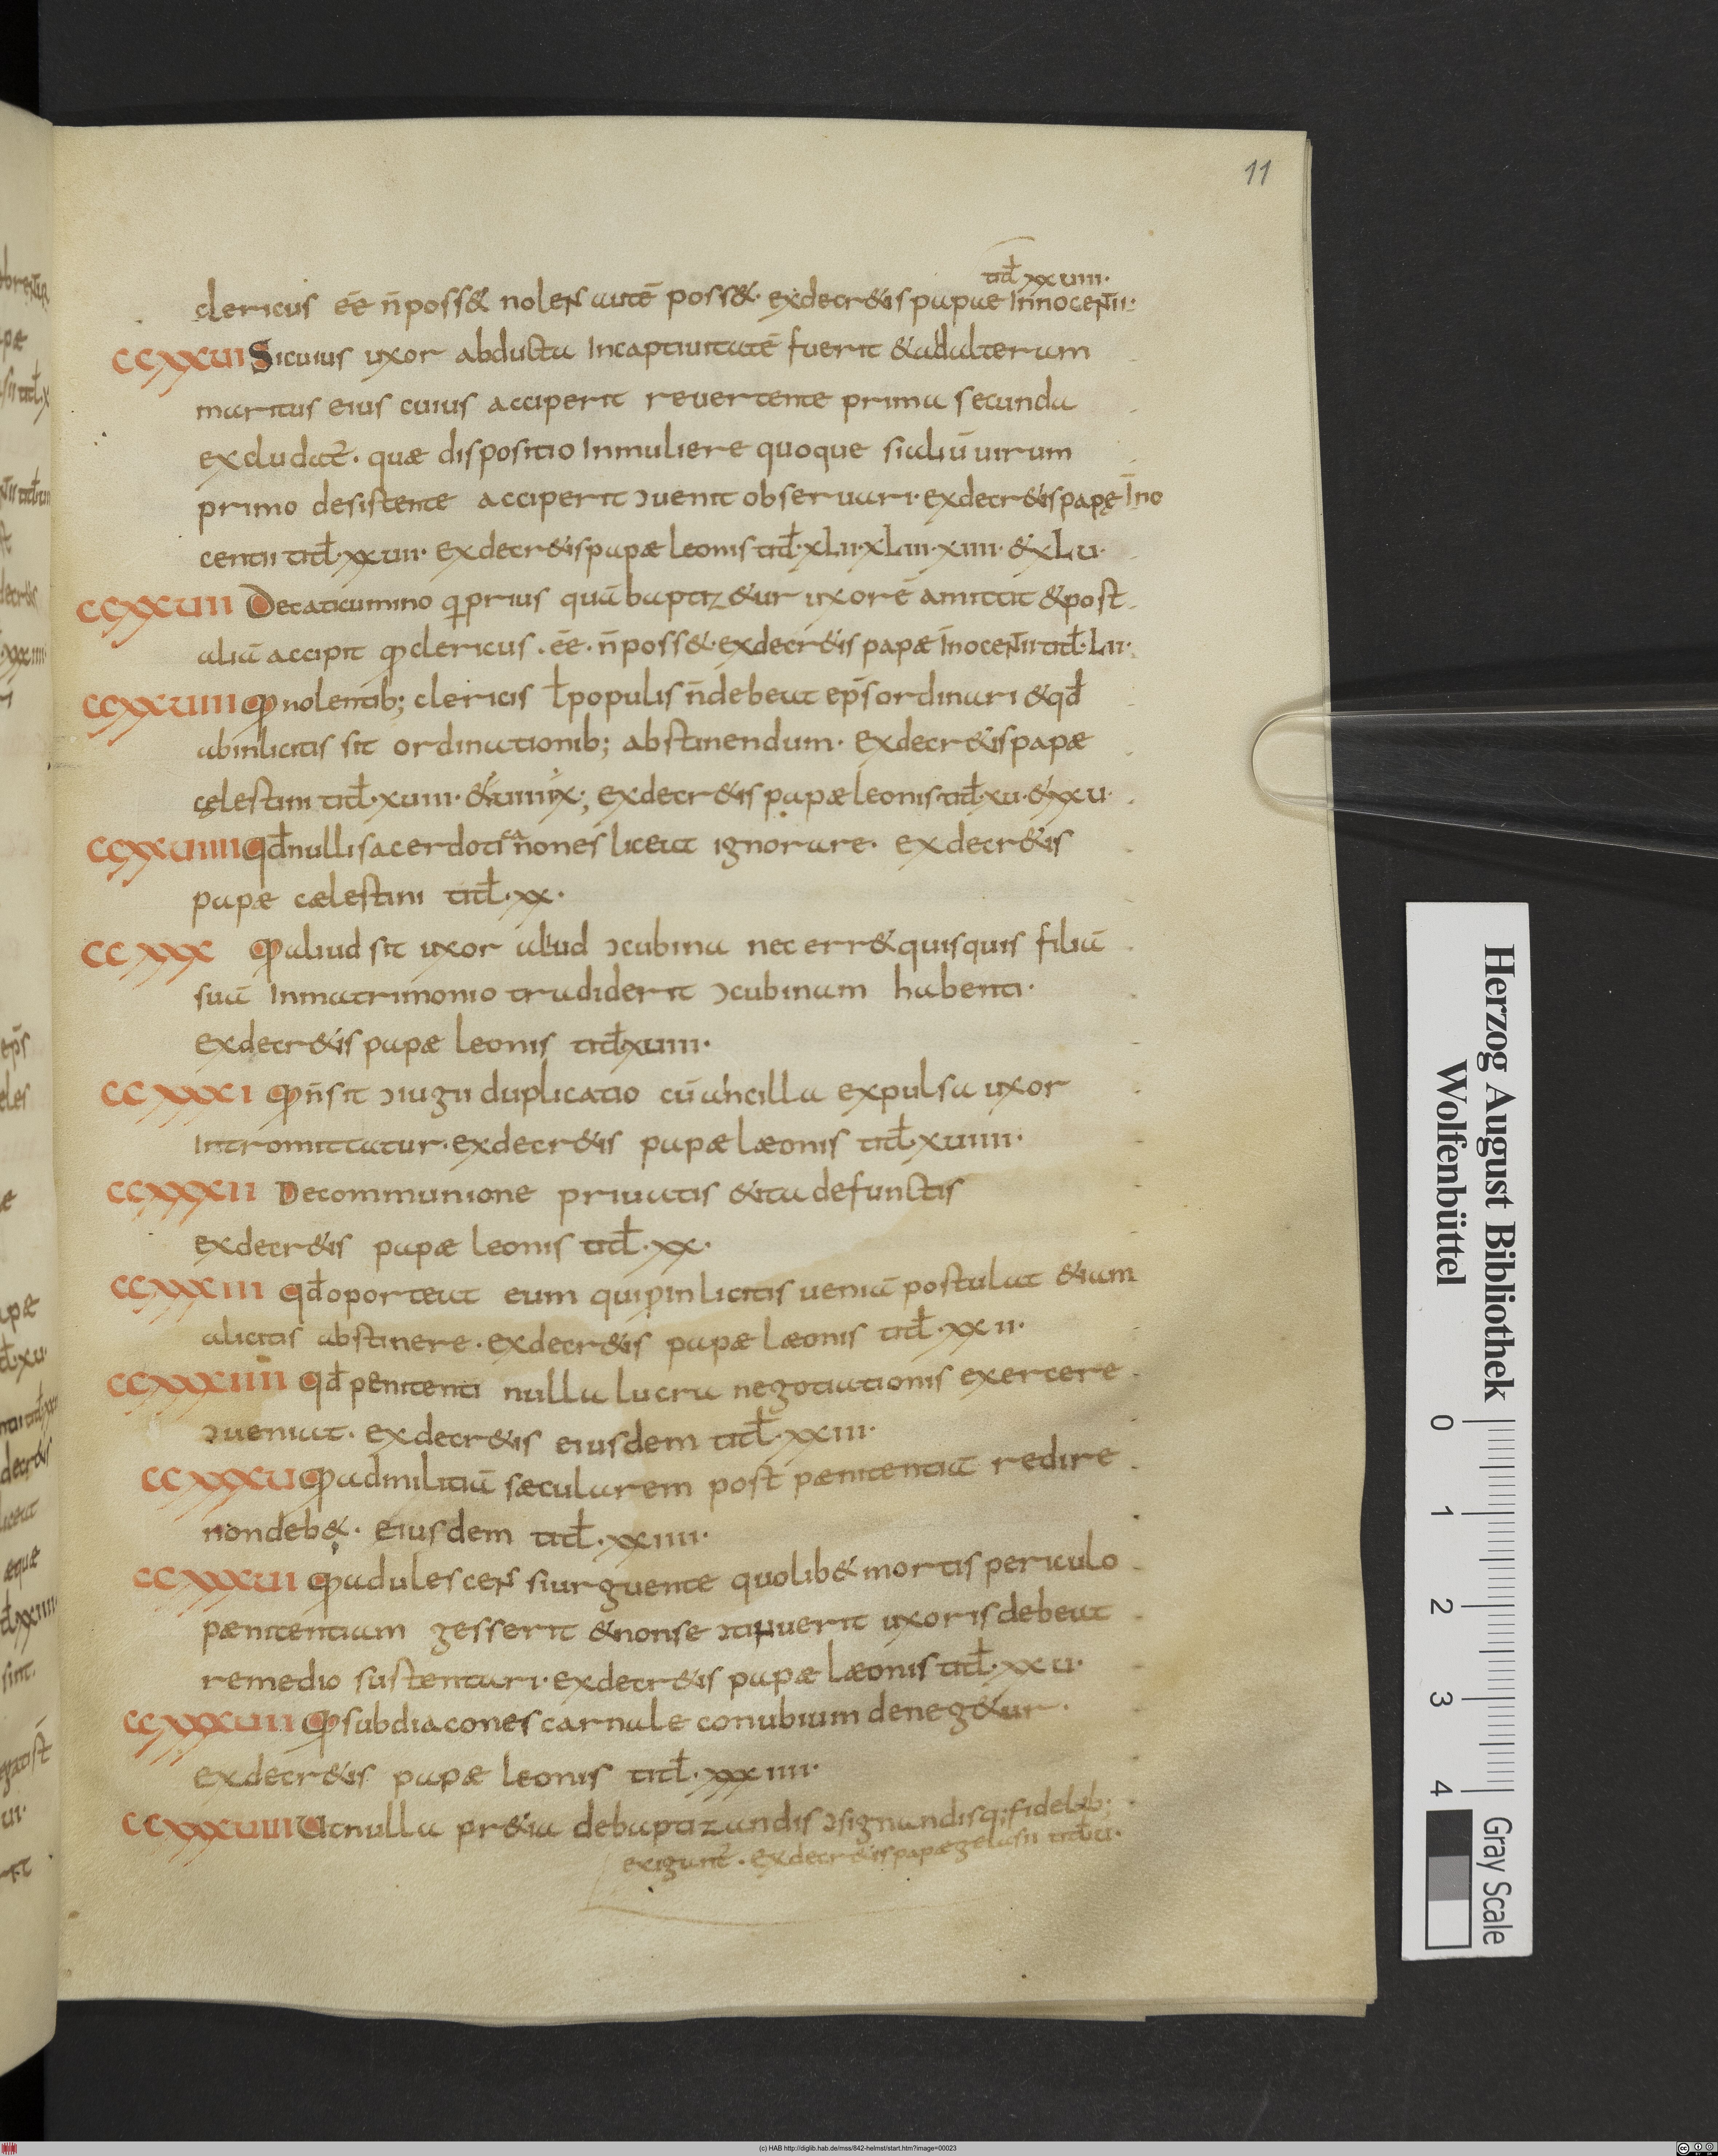 11
titł xxuiii·
clericus ēē n̄poss& nolens autē poss&· exdecr&is papae Innocentii·
CCXXUI Sicuius uxor abducta Incaptiuitatē fuerit &adulteram
maritus eius cuius acciperit reuertente prima secunda
excludat̄· quæ dispositio Inmuliere quoque sialiū uirum
primo desistente acciperit ɔuenit obseruari· exdecr&is papę In̄o
centii titł·xxuii· exdecr&is papæ leonis titł·xLii·xLiii·xiiii·&xLu·
CCXXUII Decaticumino qprius quā baptiz&ur uxorē amittit &post
aliā accipit ꝙ clericus·ēē·n̄poss&·exdecr&is papæ In̄ocentii titł·Lii·
CCXXUIII ꝙnolentib; clericis ł populis n̄debeat ep̄s ordinari &qđ
abinlicitis sit ordinationib; abstinendum· exdecr&is papæ
cęlestini titł·xuiii·&uiiiix·; exdecr&is papæ leonis·titł·xu·&xxu·
CCXXUIIII Qđnulli sacerdoti canones liceat ignorare· exdecr&is
papæ cælestini titł·xx·
CCXXX ꝙaliud sit uxor aliud ɔcubina nec err& quisquis filiā
suā Inmatrimonio tradiderit ɔcubinam habenti·
exdecr&is papæ leonis titł·xuiiii·
CCXXXI ꝙn̄sit ɔiugii duplicatio cū ancilla expulsa uxor
Intromittatur· exdecr&is papæ læonis titł·xuiiii·
CCXXXII Decommunione priuatis &ita defunctis
exdecr&is papæ leonis titł·xx·
CCXXXIII Qđoporteat eum qui pInlicitis ueniā postulat &iam
alicitis abstinere· exdecr&is papæ læonis titł·xxii·
CCXXXIIII Qđpenitenti nulla lucra negotiationis exercere
ɔueniat· exdecr&is eiusdem titł·xxiii·
CCXXXU ꝙadmilitiā sæcularem post pænitentiā redire
nondeb&· eiusdem titł·xxiiii·
CCXXXUI ꝙadulescens siurguente quolib& mortis periculo
pænitentiam gesserit &nonse ɔtinuerit uxoris debeat
remedio sustentari· exdecr&is papæ læonis titł·xxu·
CCXXXUII ꝙsubdiacones carnale conubium deneg&ur·
exdecr&is papæ leonis titł·xxxiiii·
CCXXXUIII Utnulla pr&ia debaptizandis ɔsignandisq; fidelib;
exigant̄· exdecr&is papæ gelasii titł·u·
Herzog August Bibliothek
Wolfenbüttel
0 1 2 3 4
Gray Scale
(c) HAB http://diglib.hab.de/mss/842-helmst/start.htm?image=00023